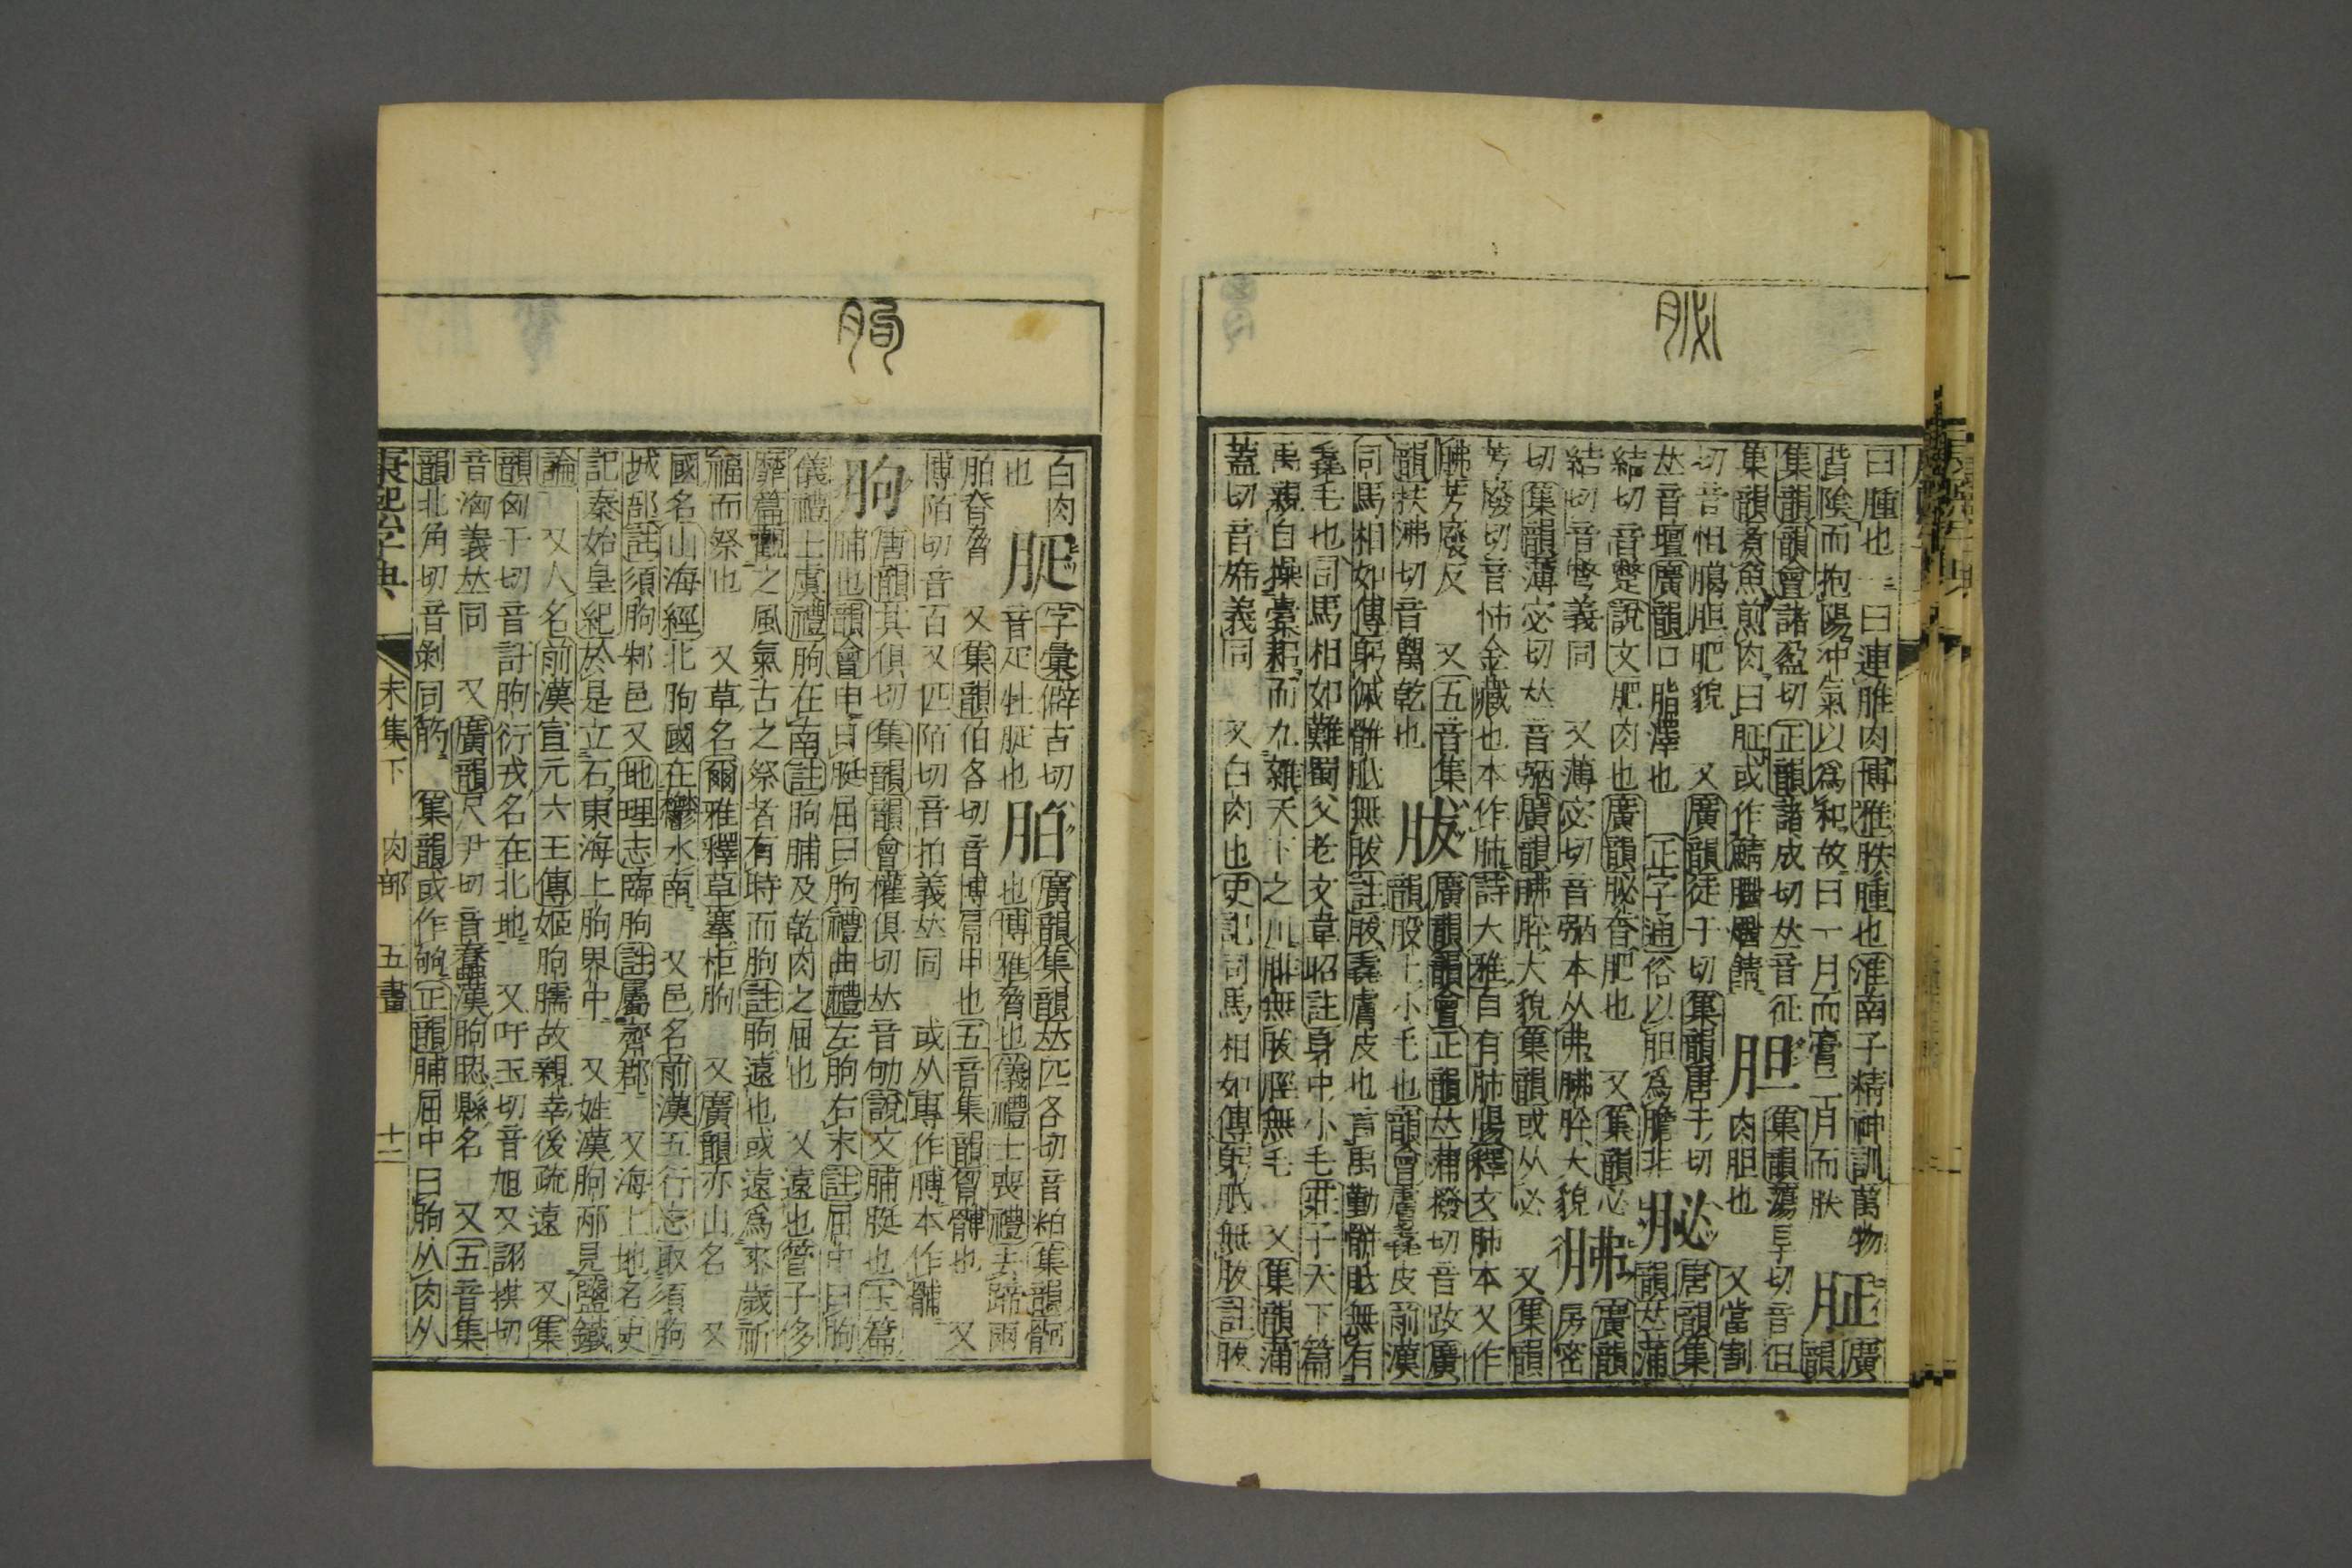 曰腫也一曰連脽肉博雅胅腫也淮南子精神訓萬物
背陰而抱陽沖氣以爲和故曰一月而膏二月而胅
胚
廣韻
集韻韻會諸盈切正韻諸成切𠀤音征
集韻煑魚煎肉曰胚或作鯖
胆
集韻蕩旱切音但
肉胆也
又當割
切音怛䐛胆肥貌
又廣韻徒干切集韻唐干切
𠀤音壇廣韻口脂澤也
正字通俗以胆爲膽非
䏟
唐韻集
韻𠀤蒲
結切音蹩說文肥肉也廣韻䏟香肥也
又集韻必
結切音彆義同
又薄宓切音弼本从弗胇䏺大貌
胇
廣韻
房密
切集韻薄宓切𠀤音弼廣韻胇䏺大貌集韻或从必
又集韻
芳廢切音怖金藏也本作肺詩大雅自有肺腸釋文肺本又作
胇芳廢反
又五音集
韻扶沸切音𩰾乾也
胈
廣韻韻會正韻𠀤蒲撥切音跋廣
韻股上小毛也韻會膚毳皮前漢
司馬相如傳躬傶骿胝無胈註胈毳膚皮也言禹勤骿胝無有
毳毛也司馬相如難蜀父老文韋昭註身中小毛莊子天下篇
禹親自操橐耜而九雜天下之川腓無胈脛無毛
又集韻蒲
蓋切音旆義同
又白肉也史記司馬相如傳躬胝無胈註胈
白肉
也
字彙僻吉切
音疋牡脡也
胉
廣韻集韻𠀤匹各切音粕集韻䯊
也博雅脅也儀禮士喪禮去蹄兩
胉脊脅
又集韻伯各切音博肩甲也五音集韻胷髆也
又
博陌切音百又匹陌切音拍義𠀤同
或从專作膊本作䪙
胊
唐韻其俱切集韻韻會權俱切𠀤音劬說文脯脡也玉篇
脯也韻會申曰脡屈曰胊禮曲禮左胊右末註屈中曰胊
儀禮士虞禮胊在南註胊脯及乾肉之屈也
又遠也管子侈
靡篇觀之風氣古之祭者有時而胊註胊遠也或遠爲來歲祈
福而祭也
又草名爾雅釋草蹇柜胊
又廣韻亦山名
又
國名山海經北胊國在鬱水南
又邑名前漢五行志取須胊
城郚註須胊邾邑又地理志臨胊註屬齊郡
又海上地名史
記秦始皇紀於是立石東海上胊界中
又姓漢胊邴見鹽鐵
論
又人名前漢宣元六王傳姬胊臑故親幸後疏遠
又集
韻匈于切音訏胊衍戎名在北地
又吁玉切音旭又詡拱切
音洶義𠀤同
又廣韻尺尹切音蠢漢胊䏰縣名
又五音集
韻北角切音剝同筋
集韻或作䠼正韻脯屈中曰胊从肉从
康熙字典
未集下
肉部
五畫
十二